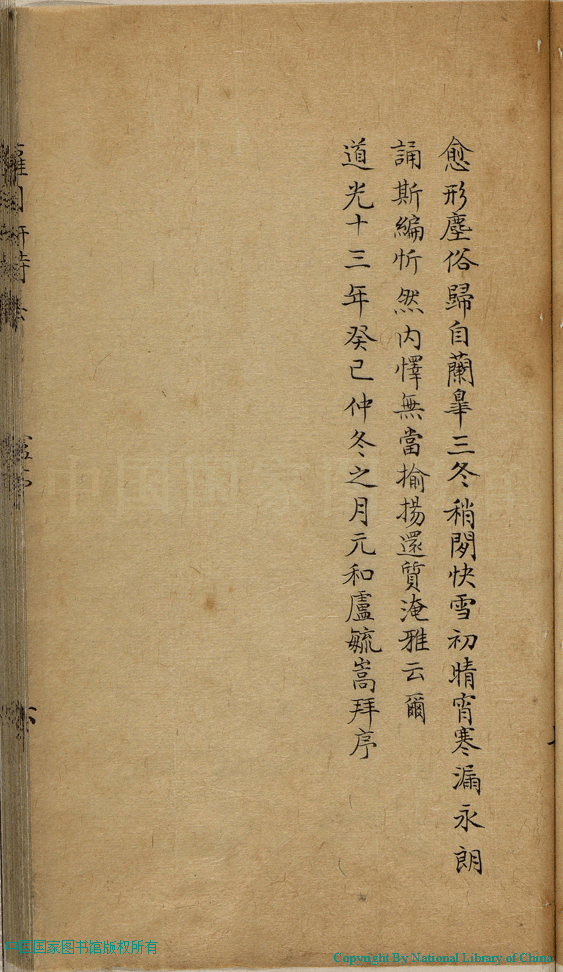 愈形塵俗歸自蘭臯三冬稍閒快雪初晴宵寒漏永朗
誦斯編忻然內懌無當揄揚還質淹雅云爾
道光十三年癸巳仲冬之月元和盧毓嵩拜序
中国国家图书馆版权所有
Copyright By National Library of China